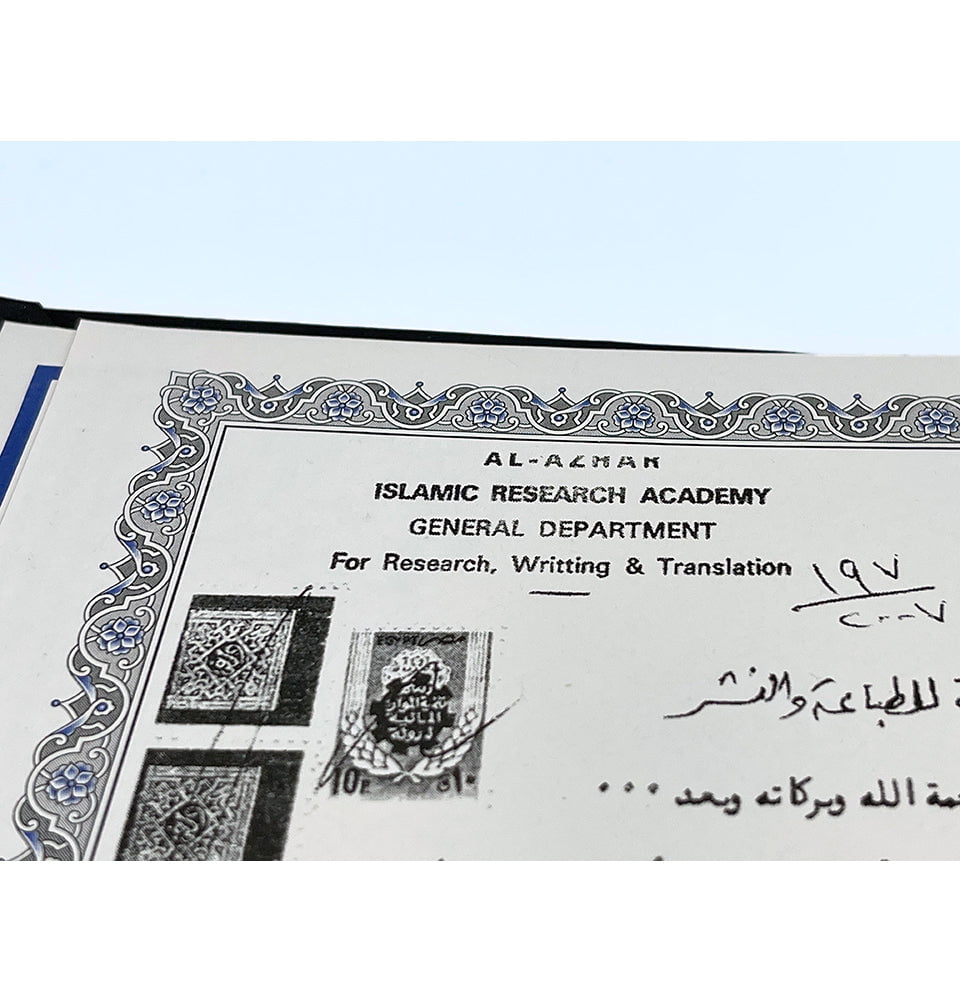 AL-AZHAR
ISLAMIC RESEARCH ACADEMY
GENERAL DEPARTMENT
For Research, Writting & Translation
١٩٧
٢٠٠٧
للطباعة والنشر
الله وبركاته وبعد ...
10P